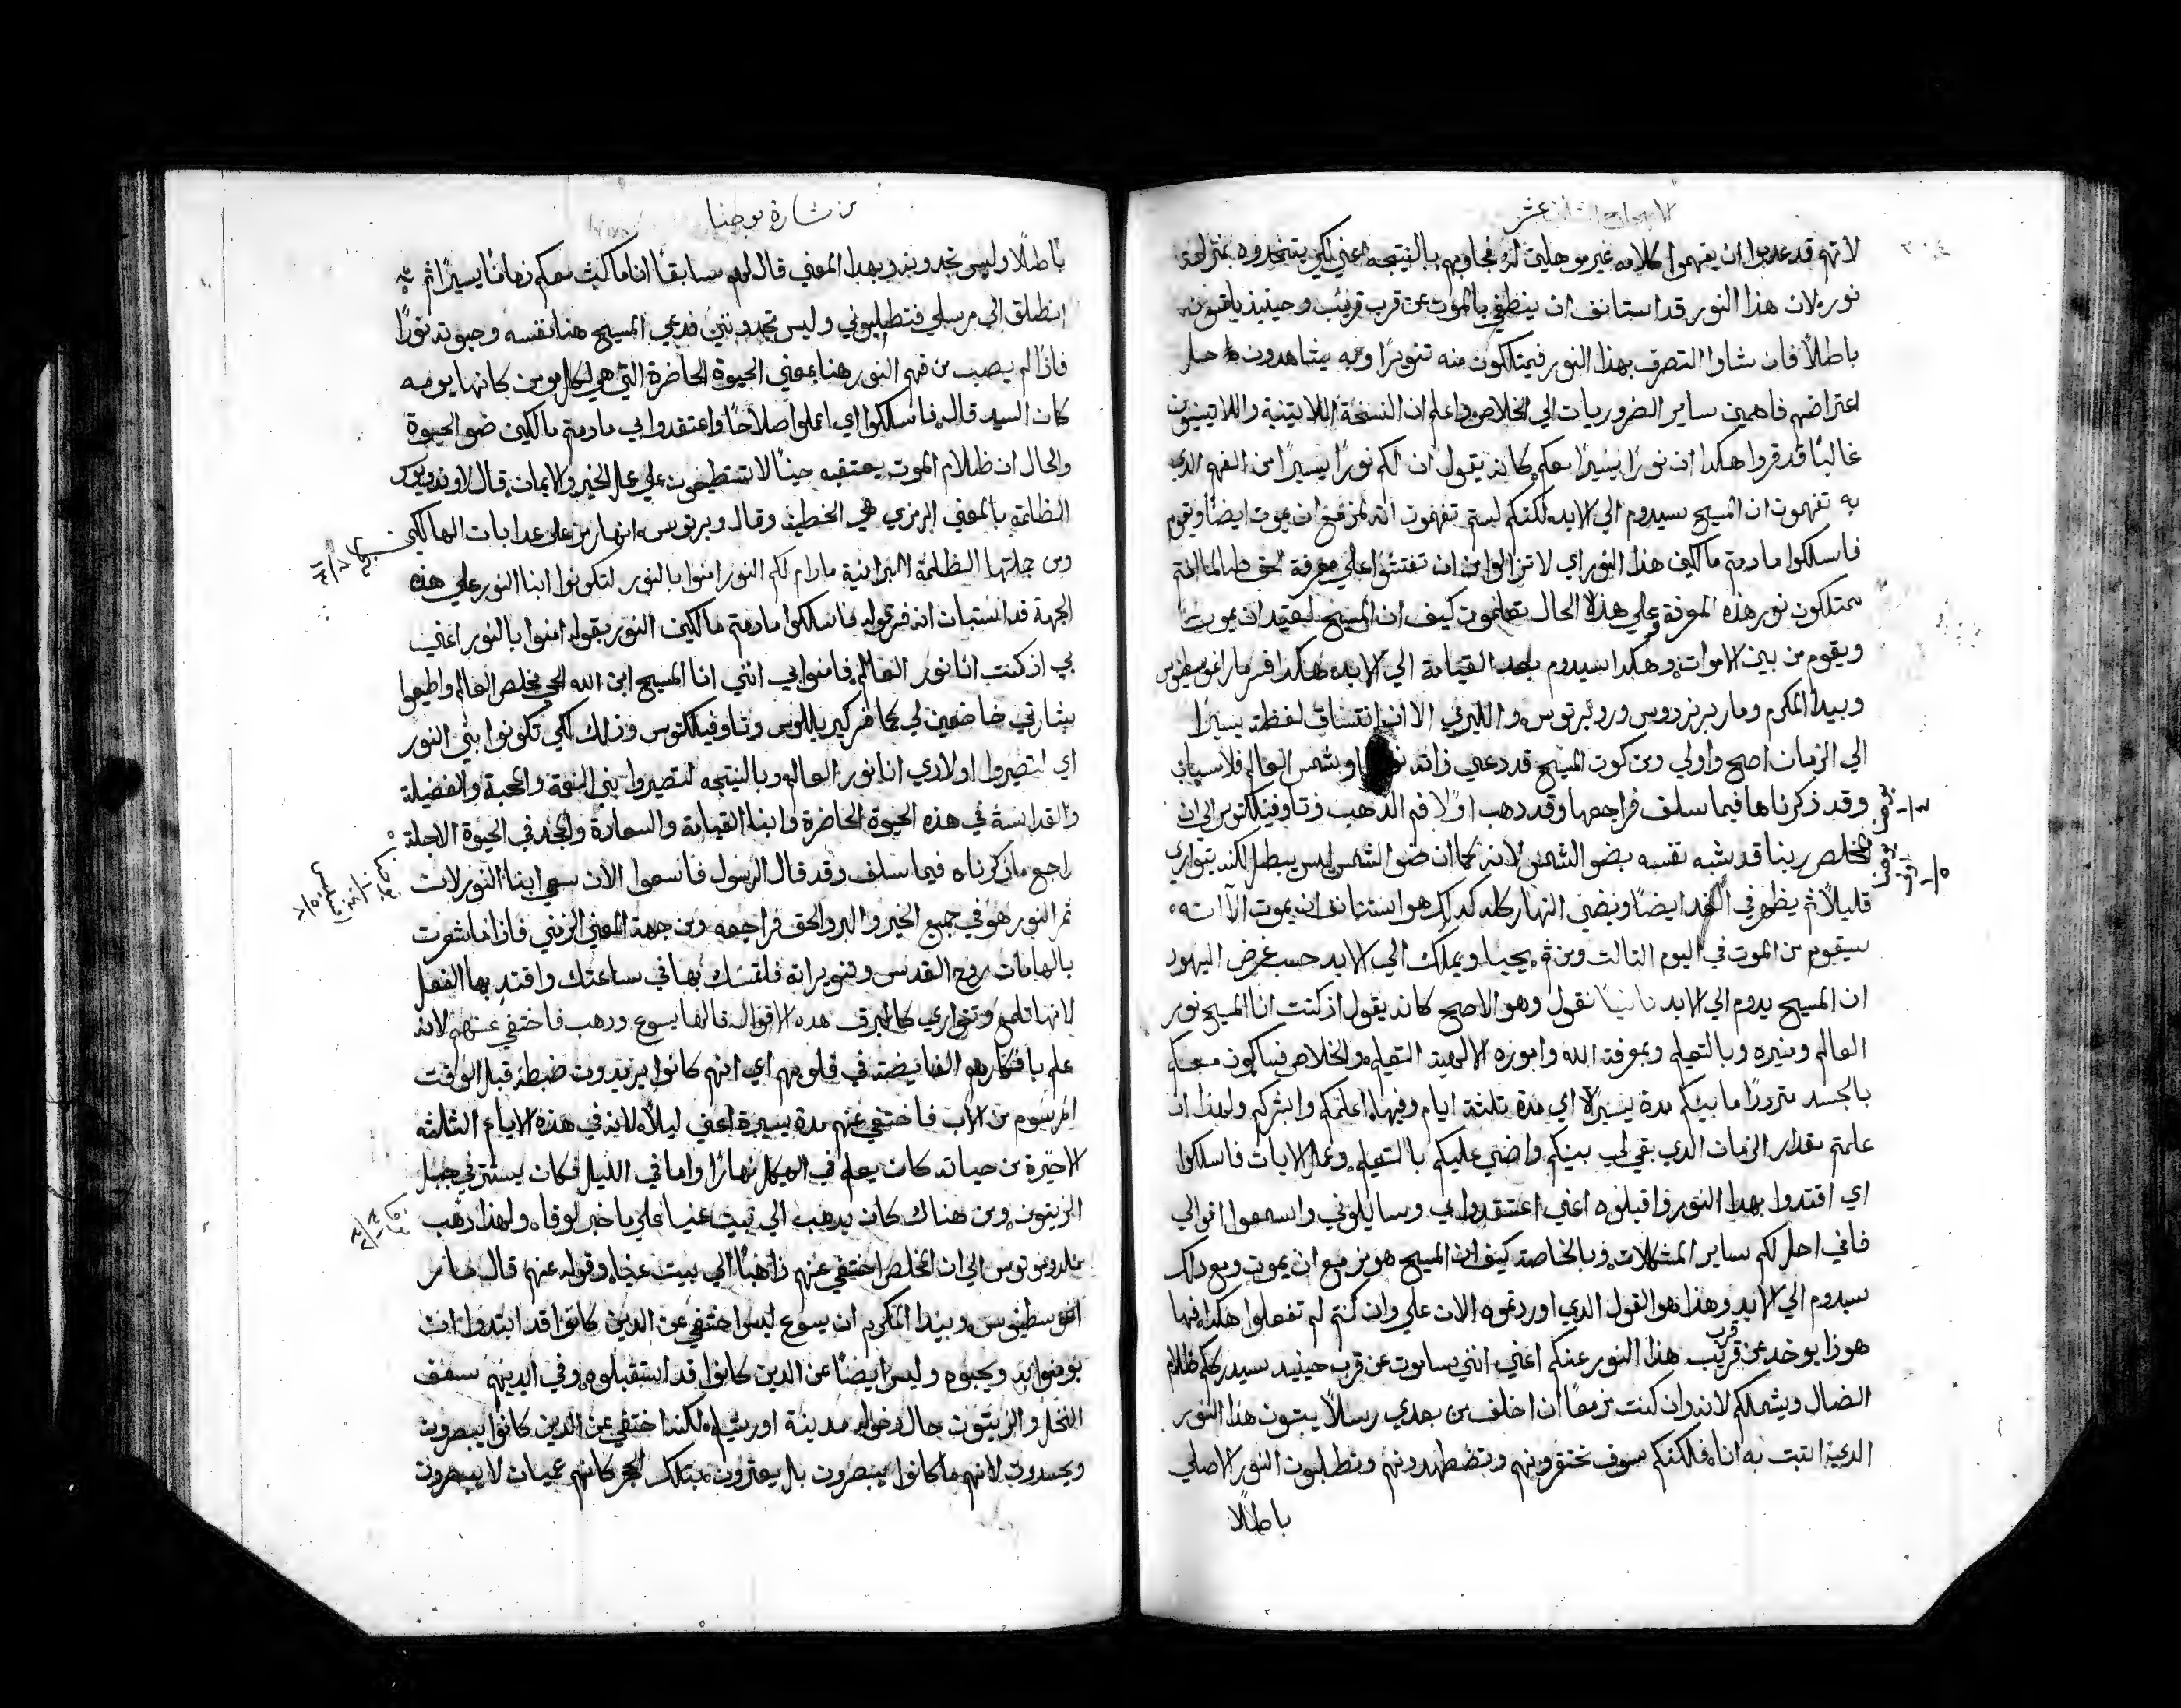 الاصحاح الثاني عشر
٢٠٤
لانهم قد عدموا ان يفهموا كلامه غير موهلين له فجاوبهم بالنتيجه اعني لكي يتخدوه بمنزلة
نوره لان هذا النور قد استانف ان ينطفي بالموت عن قرب قريب وحينيذ يلتمسونه
باطلاً فان شاوا التصرف بهذا النور فيمتلكون منه تنويرًا وبه يشاهدون حل
اعتراضهم فاهمين ساير الضروريات الي الخلاص واعلم ان النسخة اللاتينية واللاتينيين
غالبًا قد قروا هكدا ان نورًا يسيرًا معكم كانه يقول ان لكم نورًا يسيرًا من الفهم الدي
به تفهمون ان المسيح سيدوم الي الابد لكنكم لستم تفهمون انه مزمع ان يموت ايضًا ويقوم
فاسلكوا ما دمتم مالكين هذا النور اي لا تزالوا من ان تفتشوا علي معرفة الحق طالما انتم
تمتلكون نور هذه المعرفة وعلي هذا الحال تعلمون كيف ان المسيح لعتيد ان يموت
ويقوم من بين الاموات وهكدا سيدوم بعد القيامة الي الابد هكدا فسر مار اغوسطينوس
وبيدا المكرم ومار برنردوس وروبرتوس والليرني الا ان انتساق لفظة يسيرًا
الي الزمان اصح واولي ومن كون المسيح قد دعي ذاته نورًا وشمس العالم فلاسباب
وقد ذكرناها فيما سلف فراجعها وقد دهب اولًا فم الدهب وتاوفيلكتوس الي ان
المخلص ربنا قد شبه نفسه بضو الشمس لانه كما ان ضو الشمس ليس يبطل لكنه يتواري
قليلاً ثم يظهر في الغد ايضًا ويضي النهار كله كدلك هو استانف ان يموت الا انه
سيقوم من الموت في اليوم التالت ومن ثم يحيا ويملك الي الابد حسب غرض اليهود
ان المسيح يدوم الي الابد ثانيًا نقول وهو الاصح كانه يقول اذ كنت انا المسيح نور
العالم ومنيره وبالتعليم وبمعرفة الله واموره الالهية التعليم والخلاص فساكون معكم
بالجسد مترددًا ما بينكم مدة يسيرة اي مدة تلثة ايام وفيها اعلمكم وابشركم ولهذا اذ
علمتم مقدار الزمان الدي بقي لي بينكم واضي عليكم بالتعليم وعمل الايات فاسلكوا
اي اقتدوا بهدا النور فاقبلوه اعني اعتقدوا بي وسايلوني واسمعوا اقوالي
فاني احل لكم ساير المشكلات وبالخاصة كيف ان المسيح هو مزمع ان يموت ومع دلك
سيدوم الي الابد وهذا هو القول الدي اوردتموه الان علي وان كنتم لم تفعلوا هكدا فها
هوذا يوخد عن قرب قريب هذا النور عنكم اعني انني ساموت عن قرب حينيد سيدرككم ظلام
الضلال ويشملكم لانه وان كنت مزمعًا ان اخلف من بعدي رسلاً يبثون هدا النور
الدي اتيت به انا فلكنكم سوف تحتقرونهم وتضطهدونهم وتطلبون النور الاصلي
باطلًا
من بشارة يوحنا
باطلًا وليس تجدونه وبهدا المعني قال لهم سابقًا انا ماكث معكم زمانًا يسيرًا ثم
انطلق الي مرسلي فتطلبوني وليس تجدونني فدعي المسيح هنا نفسه وحيوته نورًا
فاذًا لم يصب من فهم النور هنا بمعني الحيوة الحاضرة التي هي لكل مومن كانها يوميه
كان السيد قال فاسلكوا اي اعملوا صلاحًا واعتقدوا بي مادمتم مالكين ضو الحيوة
والحال ان ظلام الموت يعتقبه حينًا لا تستطيعون علي عمل الخير والايمان قال
الظلمة بالمعني الرمزي هي الخطية وقال وبرتوس انها رمز علي عدابات الهالكين
ومن جملتها الظلمة البرانية مادام لكم النور امنوا بالنور لتكونوا ابنا النور علي هذه
الجهة قد استبان انه فسر قوله فاسلكوا مادمتم مالكين النور بقوله امنوا بالنور اعني
بي اذ كنت انا نور العالم فامنوا بي انني انا المسيح ابن الله الحي مخلص العالم واطيعوا
بشارتي خاضعين لي كما فسر كيرياللوس وتاوفيلكتوس وذلك لكي تكونوا بني النور
اي لتصيروا اولادي انا نور العالم وبالنتيجه لتصيروا بني النعمة والمحبة والفضيلة
والقداسة في هذه الحيوة الحاضرة وابنا القيامة والسعادة والمجد في الحيوة الاجلة
راجع ما ذكرناه فيما سلف وقد قال الرسول فاسعوا الان سعي ابنا النور لان
ثمر النور هو في جميع الخير والبر والحق فراجعه ومن جهة المعني الزمني فاذا ما شعرت
بالهامات روح القدس وتنويراته فلتمسك بها في ساعتك واقتدِ بها الفعل
لانها تلمع وتتواري كالبرق هده الاقوال قالها يسوع ودهب فاختفي عنهم لانه
علم بافكارهم الفايضة في قلوبهم اي انهم كانوا يزيدون ضبطه قبل الوقت
المرسوم من الاب فاختفي عنهم مدة يسيرة اعني ليلًا لانه في هذه الايام الثلثه
الاخيرة من حياته كان يعلم في الهيكل نهارًا واما في الليل فكان يستتر في جبل
الزيتون ومن هناك كان يدهب الي بيت عنيا علي ما خبر لوقا ولهذا دهب
ملدوناتوس الي ان المخلص اختفي عنهم ذاهبًا الي بيت عنيا وقوله عنهم قال مار
اغوسطينوس وبيدا المكرم ان يسوع ليس اختفي عن الدين كانوا قد ابتدوا ان
يومنوا به ويحبوه وليس ايضًا عن الدين كانوا قد استقبلوه وفي ايديهم سعف
النخل والزيتون حال دخوله مدينة اورشليم لكنه اختفي عن الدين كانوا يبصرون
ويحسدون لانهم ما كانوا يبصرون بل يعثرون بتلك الحجر كانهم عميان لا يبصرون